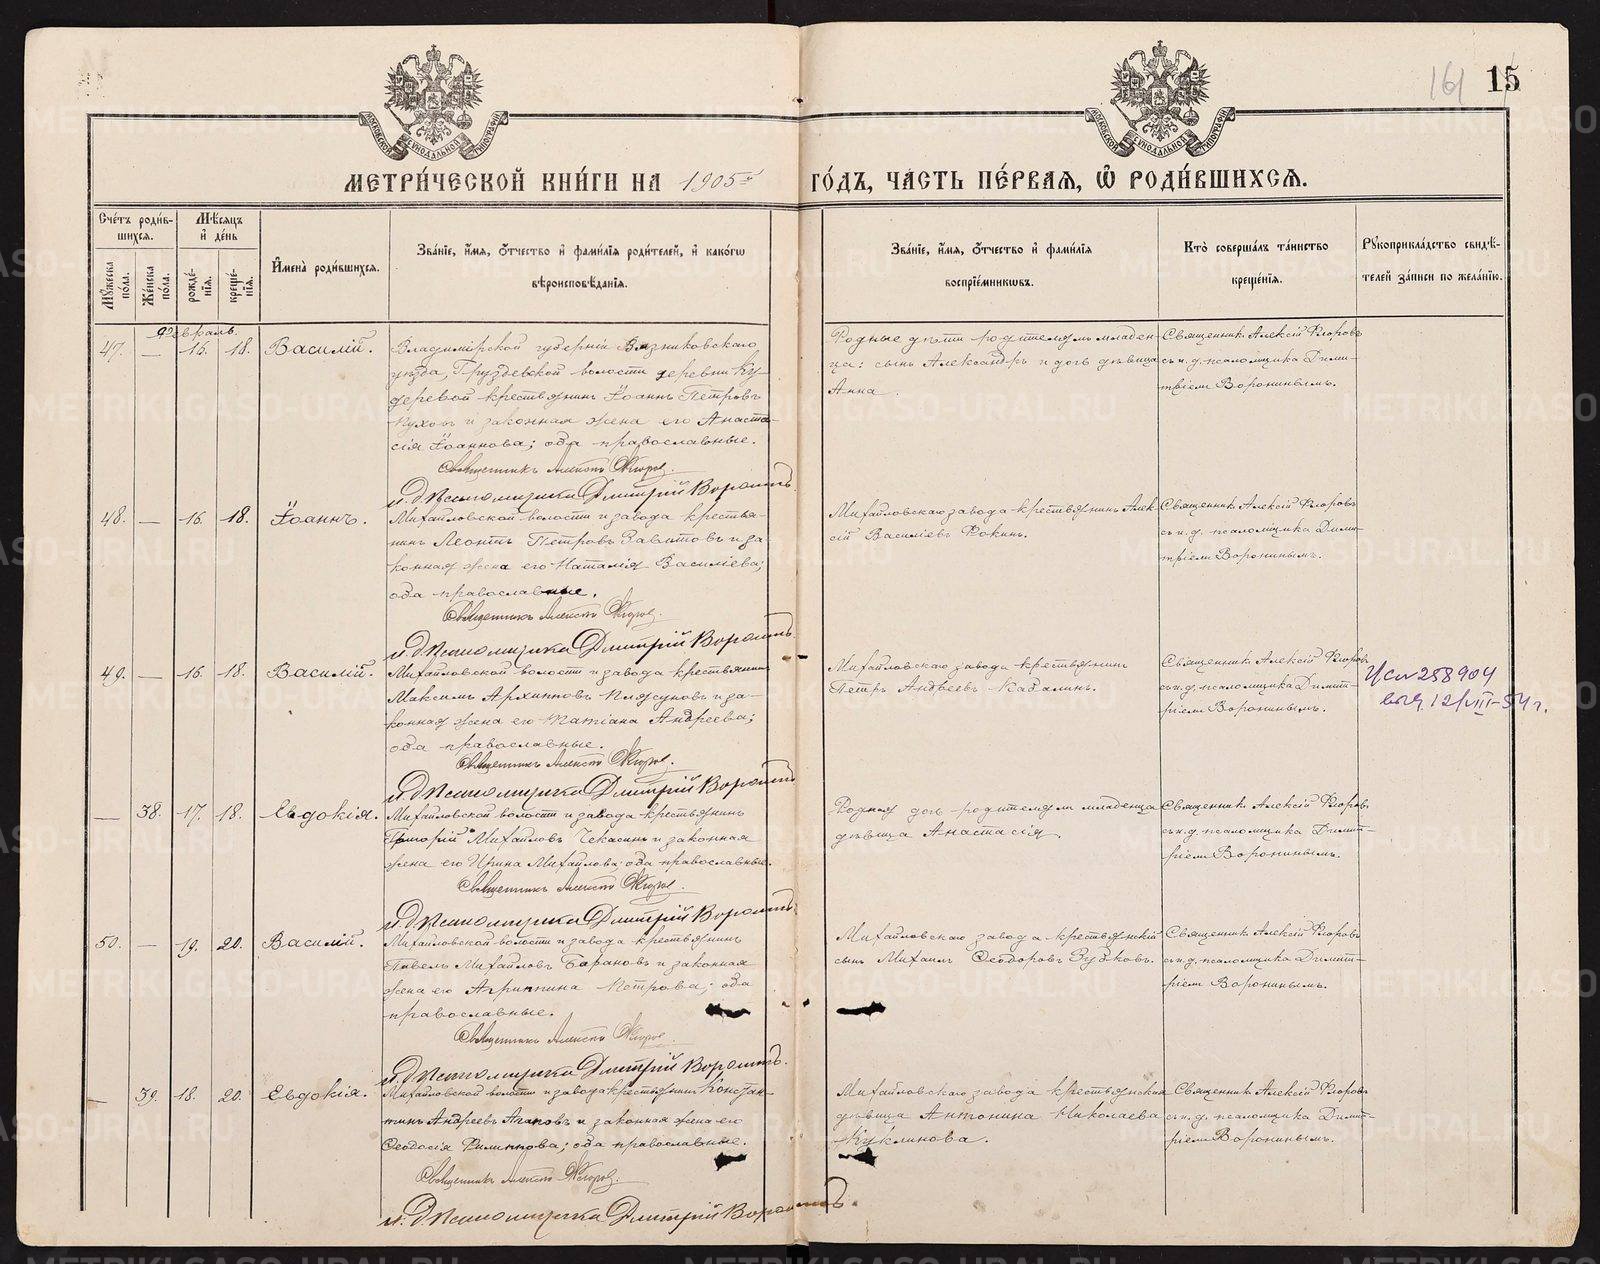 161 15
МОСКОВСКОЙ СУНОДАЛЬНОЙ ТИПОГРАФІИ
МОСКОВСКОЙ СУНОДАЛЬНОЙ ТИПОГРАФІИ
МЕТРИ́ЧЕСКОЙ КНИ́ГИ НА 1905й ГО́ДЪ, ЧА́СТЬ ПЕ́РВАЯ, Ѡ РОДИ́ВШИХСЯ.
Сче́тъ роди́в-
шихся.
Мѣ́сяцъ
и҆ де́нь
Мꙋ́жеска по́ла.
Же́нска по́ла.
рожде́-
нія.
креще́-
нія.
И҆мена̀ роди́вшихся.
Зва́ніе, и҆́мя, ѻ҆́тчество и҆ фами́лія роди́телей, и҆ како́гѡ
вѣроисповѣ́данія.
Зва́ніе, и҆́мя, ѻ҆́тчество и҆ фами́лія
воспріе́мникѡвъ.
Кто̀ соверша́лъ та́инство
креще́нія.
Рꙋкоприкла́дство свидѣ́-
телей за́писи по жела́нію.
Февраль.
47. — 15. 18. Василій.
Владимірской губерніи Вязниковскаго
уѣзда, Груздевской волости деревни Ку-
деревой крестьянинъ Іоаннъ Петровъ
Пуховъ и законная жена его Анаста-
сія Іоаннова; оба православные.
Священникъ Алексѣй Флоровъ.
и. д. псаломщика Дмитрій Воронинъ.
Родные дѣти родителямъ младен-
ца: сынъ Александръ и дочь дѣвица
Анна.
Священникъ Алексій Флоровъ
съ и. д. псаломщика Дими-
тріемъ Воронинымъ.
48. — 16. 18. Іоаннъ.
Михайловской волости и завода крестья-
нинъ Леонтій Петровъ и за-
конная жена его Наталія Василіева;
оба православные.
Священникъ Алексѣй Флоровъ.
и. д. псаломщика Дмитрій Воронинъ.
Михайловскаго завода крестьянинъ Алек-
сій Василіевъ Фокинъ.
Священникъ Алексій Флоровъ
съ и. д. псаломщика Дими-
тріемъ Воронинымъ.
49. — 16. 18. Василій.
Михайловской волости и завода крестьянинъ
Максимъ Архиповъ Плясуновъ и за-
конная жена его Татіана Андреева;
оба православные.
Священникъ Алексѣй Флоровъ.
и. д. псаломщика Дмитрій Воронинъ
Михайловскаго завода крестьянинъ
Петръ Андреевъ Кабалинъ.
Священникъ Алексій Флоровъ
съ и. д. псаломщика Димит-
ріемъ Воронинымъ.
258904
12/VIII-54 г.
— 38. 17. 18. Евдокія.
Михайловской волости и завода крестьянинъ
Григорій Михайловъ Чекасинъ и законная
жена его Ирина Михайлова; оба православные.
Священникъ Алексѣй Флоровъ.
и. д. псаломщика Дмитрій Воронинъ.
Родная дочь родителямъ младенца
дѣвица Анастасія.
Священникъ Алексій Флоровъ
съ и. д. псаломщика Димит-
ріемъ Воронинымъ.
50. — 19. 20. Василій.
Михайловской волости и завода крестьянинъ
Павелъ Михайловъ Барановъ и законная
жена его Агриппина Петрова; оба
православные.
Священникъ Алексѣй Флоровъ.
и. д. псаломщика Дмитрій Воронинъ.
Михайловскаго завода крестьянскій
сынъ Михаилъ Ѳеодоровъ Зубковъ.
Священникъ Алексій Флоровъ
съ и. д. псаломщика Димит-
ріемъ Воронинымъ.
— 39. 18. 20. Евдокія.
Михайловской волости и завода крестьянинъ Констан-
тинъ Андреевъ Агаповъ и законная жена его
Ѳеодосія Филиппова; оба православные.
Священникъ Алексѣй Флоровъ.
и. д. псаломщика Дмитрій Воронинъ.
Михайловскаго завода крестьянская
дѣвица Антонина Николаева
Куклинова.
Священникъ Алексій Флоровъ
съ и. д. псаломщика Димит-
ріемъ Воронинымъ.
METRIKI.GASO-URAL.RU